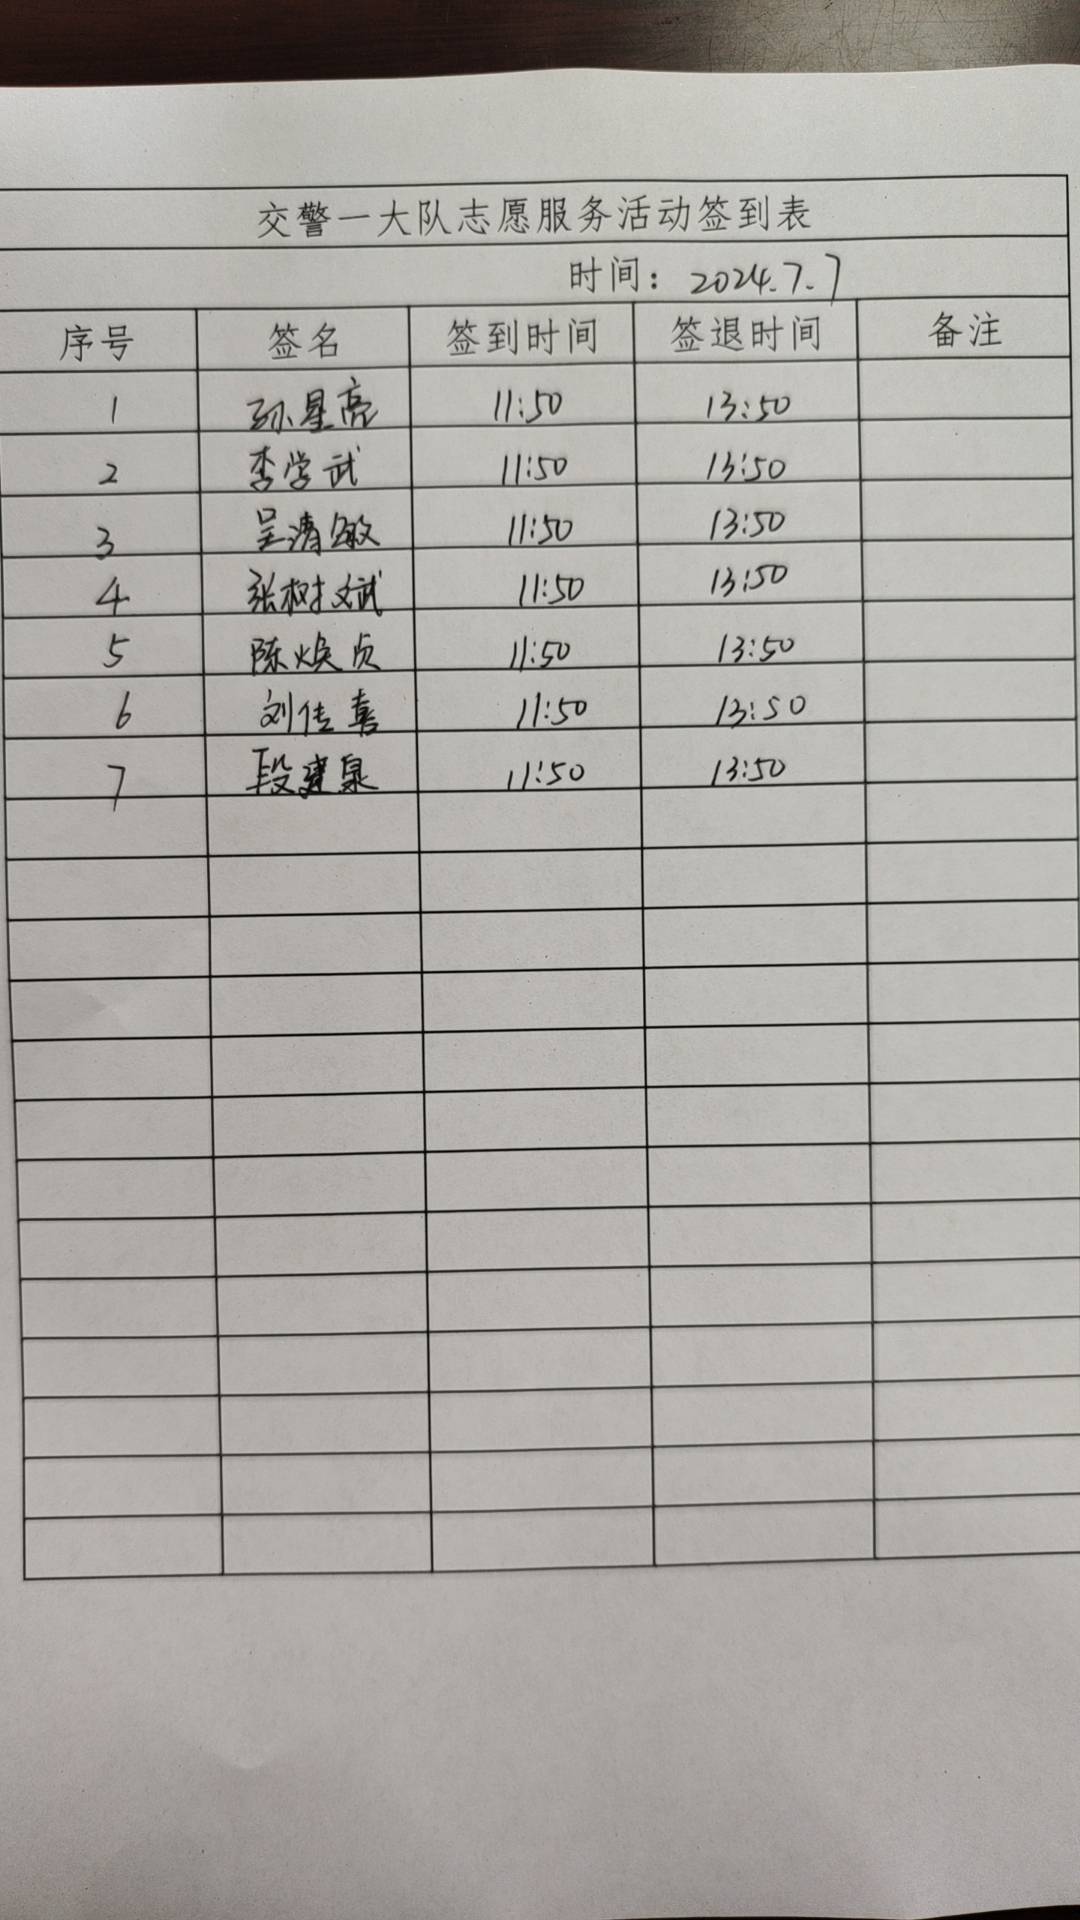 交警一大队志愿服务活动签到表
时间：2024.7.7
序号 签名 签到时间 签退时间 备注
1 孙星亮 11:50 13:50
2 李学武 11:50 13:50
3 吴清敏 11:50 13:50
4 张树斌 11:50 13:50
5 陈焕贞 11:50 13:50
6 刘传喜 11:50 13:50
7 段建泉 11:50 13:50